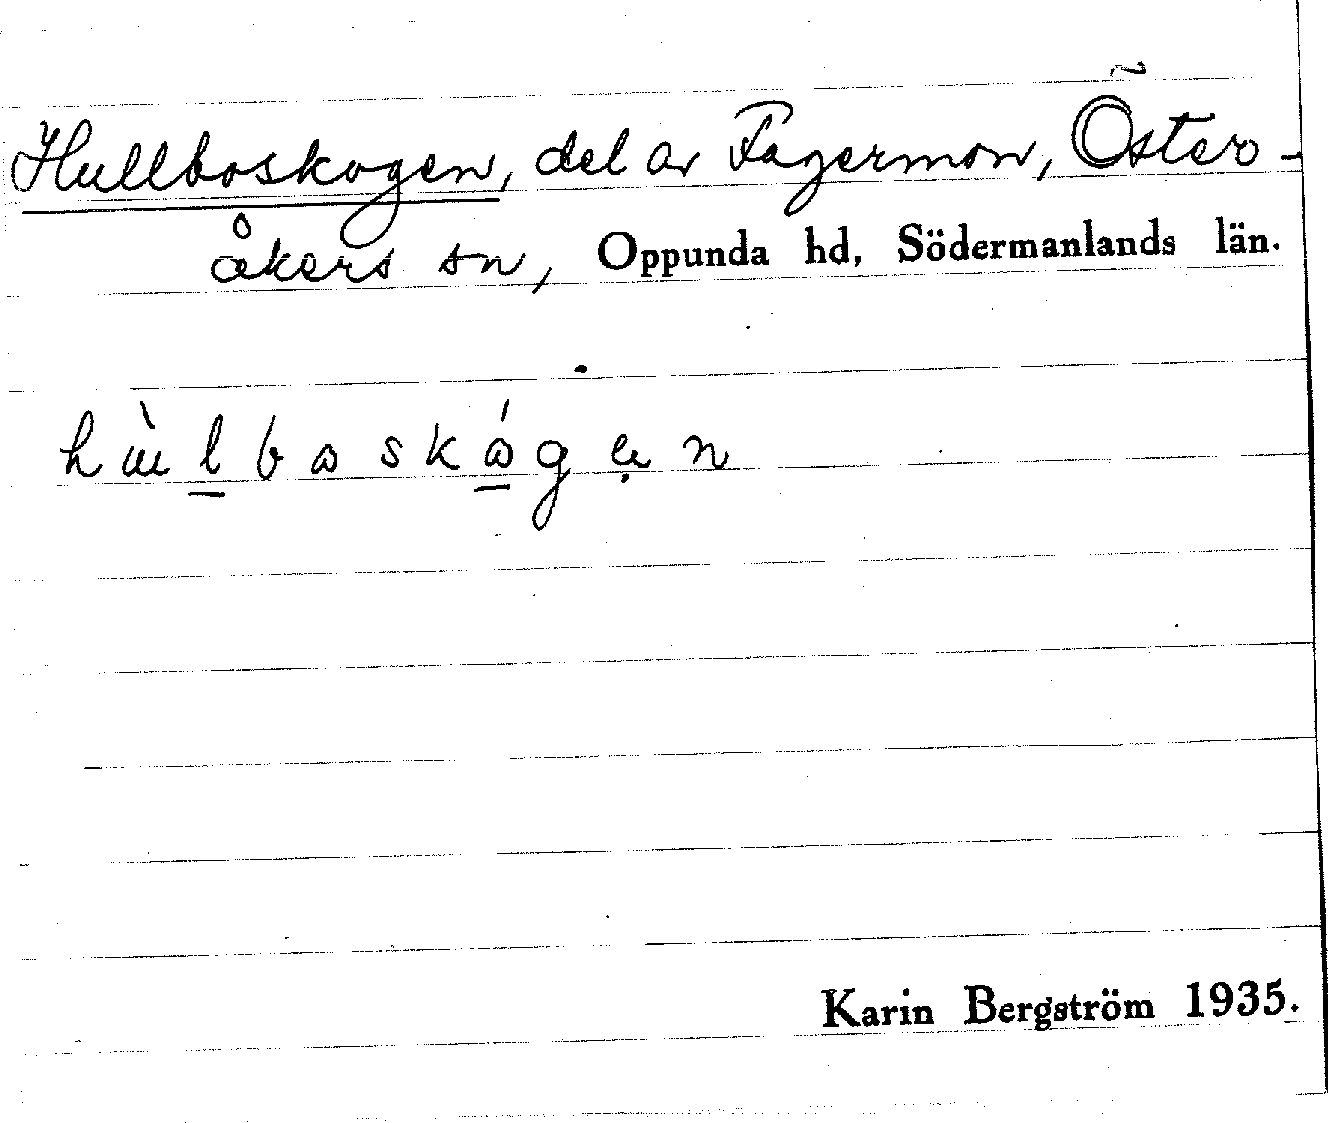 Hullboskogen, del av Fagermon, Öster-
åkers sn, Oppunda hd, Södermanlands län.
hùlboskógẹn
Karin Bergström 1935.